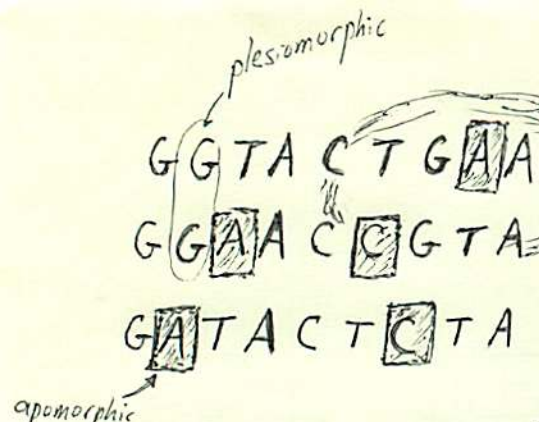 plesiomorphic
GGTACTGAA
GGAACCGTA
GATACTCTA
apomorphic